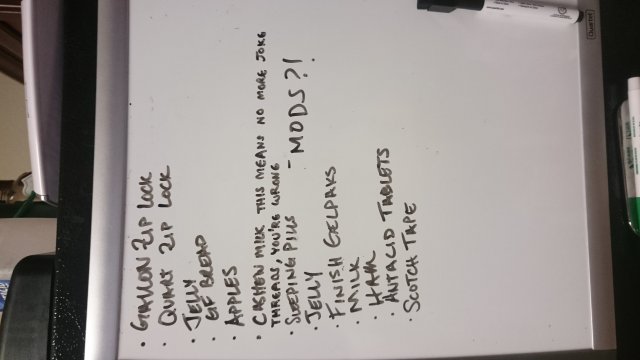 • GALLON ZIP LOCK
• QUART ZIP LOCK
• JELLY
GF BREAD
• APPLES
• CASHEW MILK THIS MEANS NO MORE JOKE
THREADS, YOU'RE WRONG
• SLEEPING PILLS - MODS?!
• JELLY
• FINISH GELPAKS
• MILK
• HAM
• ANTACID TABLETS
• SCOTCH TAPE
Quartet